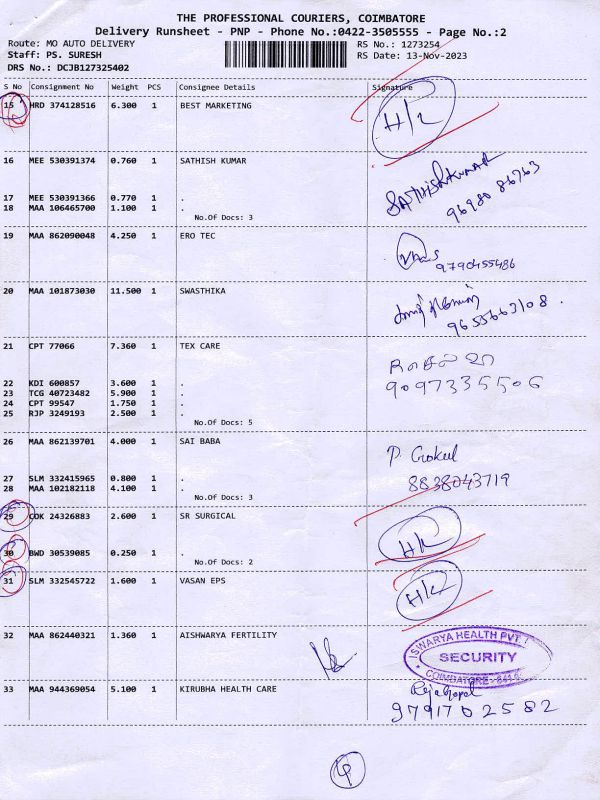 THE PROFESSIONAL COURIERS, COIMBATORE
Delivery Runsheet - PNP - Phone No.:0422-3505555 - Page No.:2
Route: MO AUTO DELIVERY RS No.: 1273254
Staff: PS. SURESH RS Date: 13-Nov-2023
DRS No.: DCJB127325402
S No Consignment No Weight PCS Consignee Details Signature
15 HRD 374128516 6.300 1 BEST MARKETING
16 MEE 530391374 0.760 1 SATHISH KUMAR
SATHISHKUMAR
17 MEE 530391366 0.770 1 .
96980 86763
18 MAA 106465700 1.100 1 .
No.Of Docs: 3
19 MAA 862090048 4.250 1 ERO TEC
9790455486
20 MAA 101873030 11.500 1 SWASTHIKA
9655663108.
21 CPT 77066 7.360 1 TEX CARE
22 KDI 600857 3.600 1 .
9097335506
23 TCG 40723482 5.900 1 .
24 CPT 99547 1.750 1 .
25 RJP 3249193 2.500 1 .
No.Of Docs: 5
26 MAA 862139701 4.000 1 SAI BABA
P. Gokul
27 SLM 332415965 0.800 1 .
8838043719
28 MAA 102182118 4.100 1 .
No.Of Docs: 3
29 COK 24326883 2.600 1 SR SURGICAL
30 BWD 30539085 0.250 1 .
No.Of Docs: 2
31 SLM 332545722 1.600 1 VASAN EPS
32 MAA 862440321 1.360 1 AISHWARYA FERTILITY
ISWARYA HEALTH PVT
SECURITY
COIMBATORE
33 MAA 944369054 5.100 1 KIRUBHA HEALTH CARE
Rajagopal
9791702582